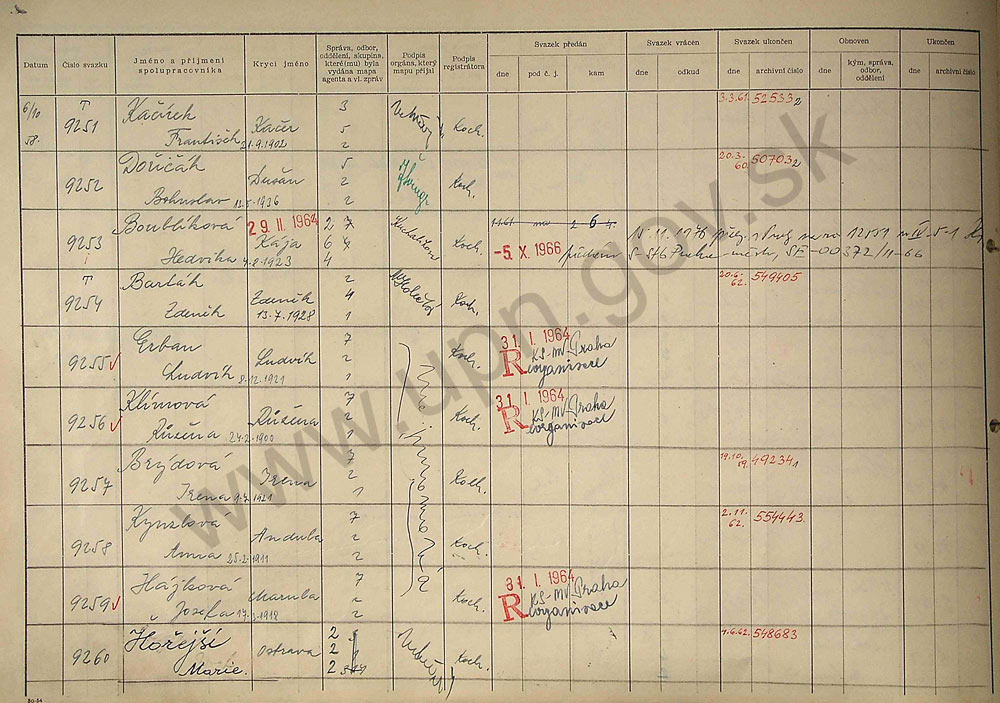 Datum
Číslo svazku
Jméno a příjmení spolupracovníka
Krycí jméno
Správa, odbor, oddělení, skupina, které(mu) byla vydána mapa agenta a vl. zpráv
Podpis orgána, který mapu přijal
Podpis registrátora
Svazek předán
dne
pod č. j.
kam
Svazek vrácen
dne
odkud
Svazek ukončen
dne
archivní číslo
Obnoven
dne
kým, správa, odbor, oddělení
Ukončen
dne
archivní číslo
6/10 58. T 9251 Kačírek 3 Koch. 3.3.61. 525332
František Kačer 21.9.1902 5 2
9252 Dořičák Dušan 5 2 Koch. 20.3. 60. 507032
Bohuslav 2
9253 Boublíková 29. II. 1964 2 7 Koch.
Hedvika Kája 6 4 -5. X. 1966
4.8.1923 4
T 9254 Barták Zdeněk 7 4 Koch. 20.6. 62. 549405
Zdeněk 13.7.1928 1
9255 Erban Ludvík 7 2 Koch. 31. I. 1964 R KS-MV-Praha
Ludvík 8.12.1921 1 organisace
9256 Klímová Růžena 7 2 Koch. 31. I. 1964 R KS-MV-Praha
Růžena 24.2.1900 1 organisace
9257 Brýdová Irena 7 2 Koch. 19.10. 59. 492341
Irena 9.7.1921 1
9258 Kynzlová Andula 7 2 Koch. 2.11. 62. 554443
Anna 25.2.1911 2
9259 Hájková Marula 7 2 Koch. 31. I. 1964 R KS-MV-Praha
Josefa 17.3.1918 2 organisace
9260 Hořejší Ostrava 2 2 Koch. 548683
Marie. 2
www.upn.gov.sk